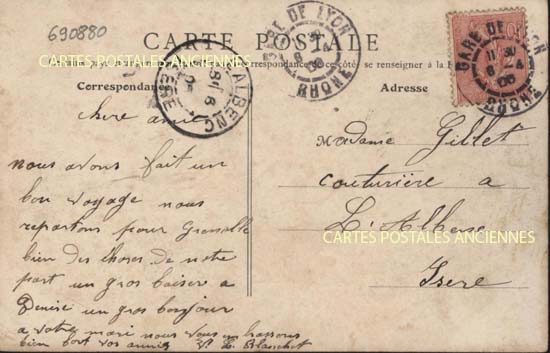 690880
CARTE POSTALE
CARTES POSTALES ANCIENNES
se renseigner à la
Correspondance
Adresse
GARE DE LYON
RHONE
GARE DE LYON
11 30
RHONE
L'ALBENC
ISERE
chere amie
nous avons fait un
bon voyage nous
repartons pour Grenoble
bien des choses de notre
part un gros baiser a
Denise un gros bonjour
a votre mari nous vous embrassons
bien fort vos amies V. L. Blanchet
Madame Gillet
couturière a
L'Albenc
CARTES POSTALES ANCIENNES
Isere